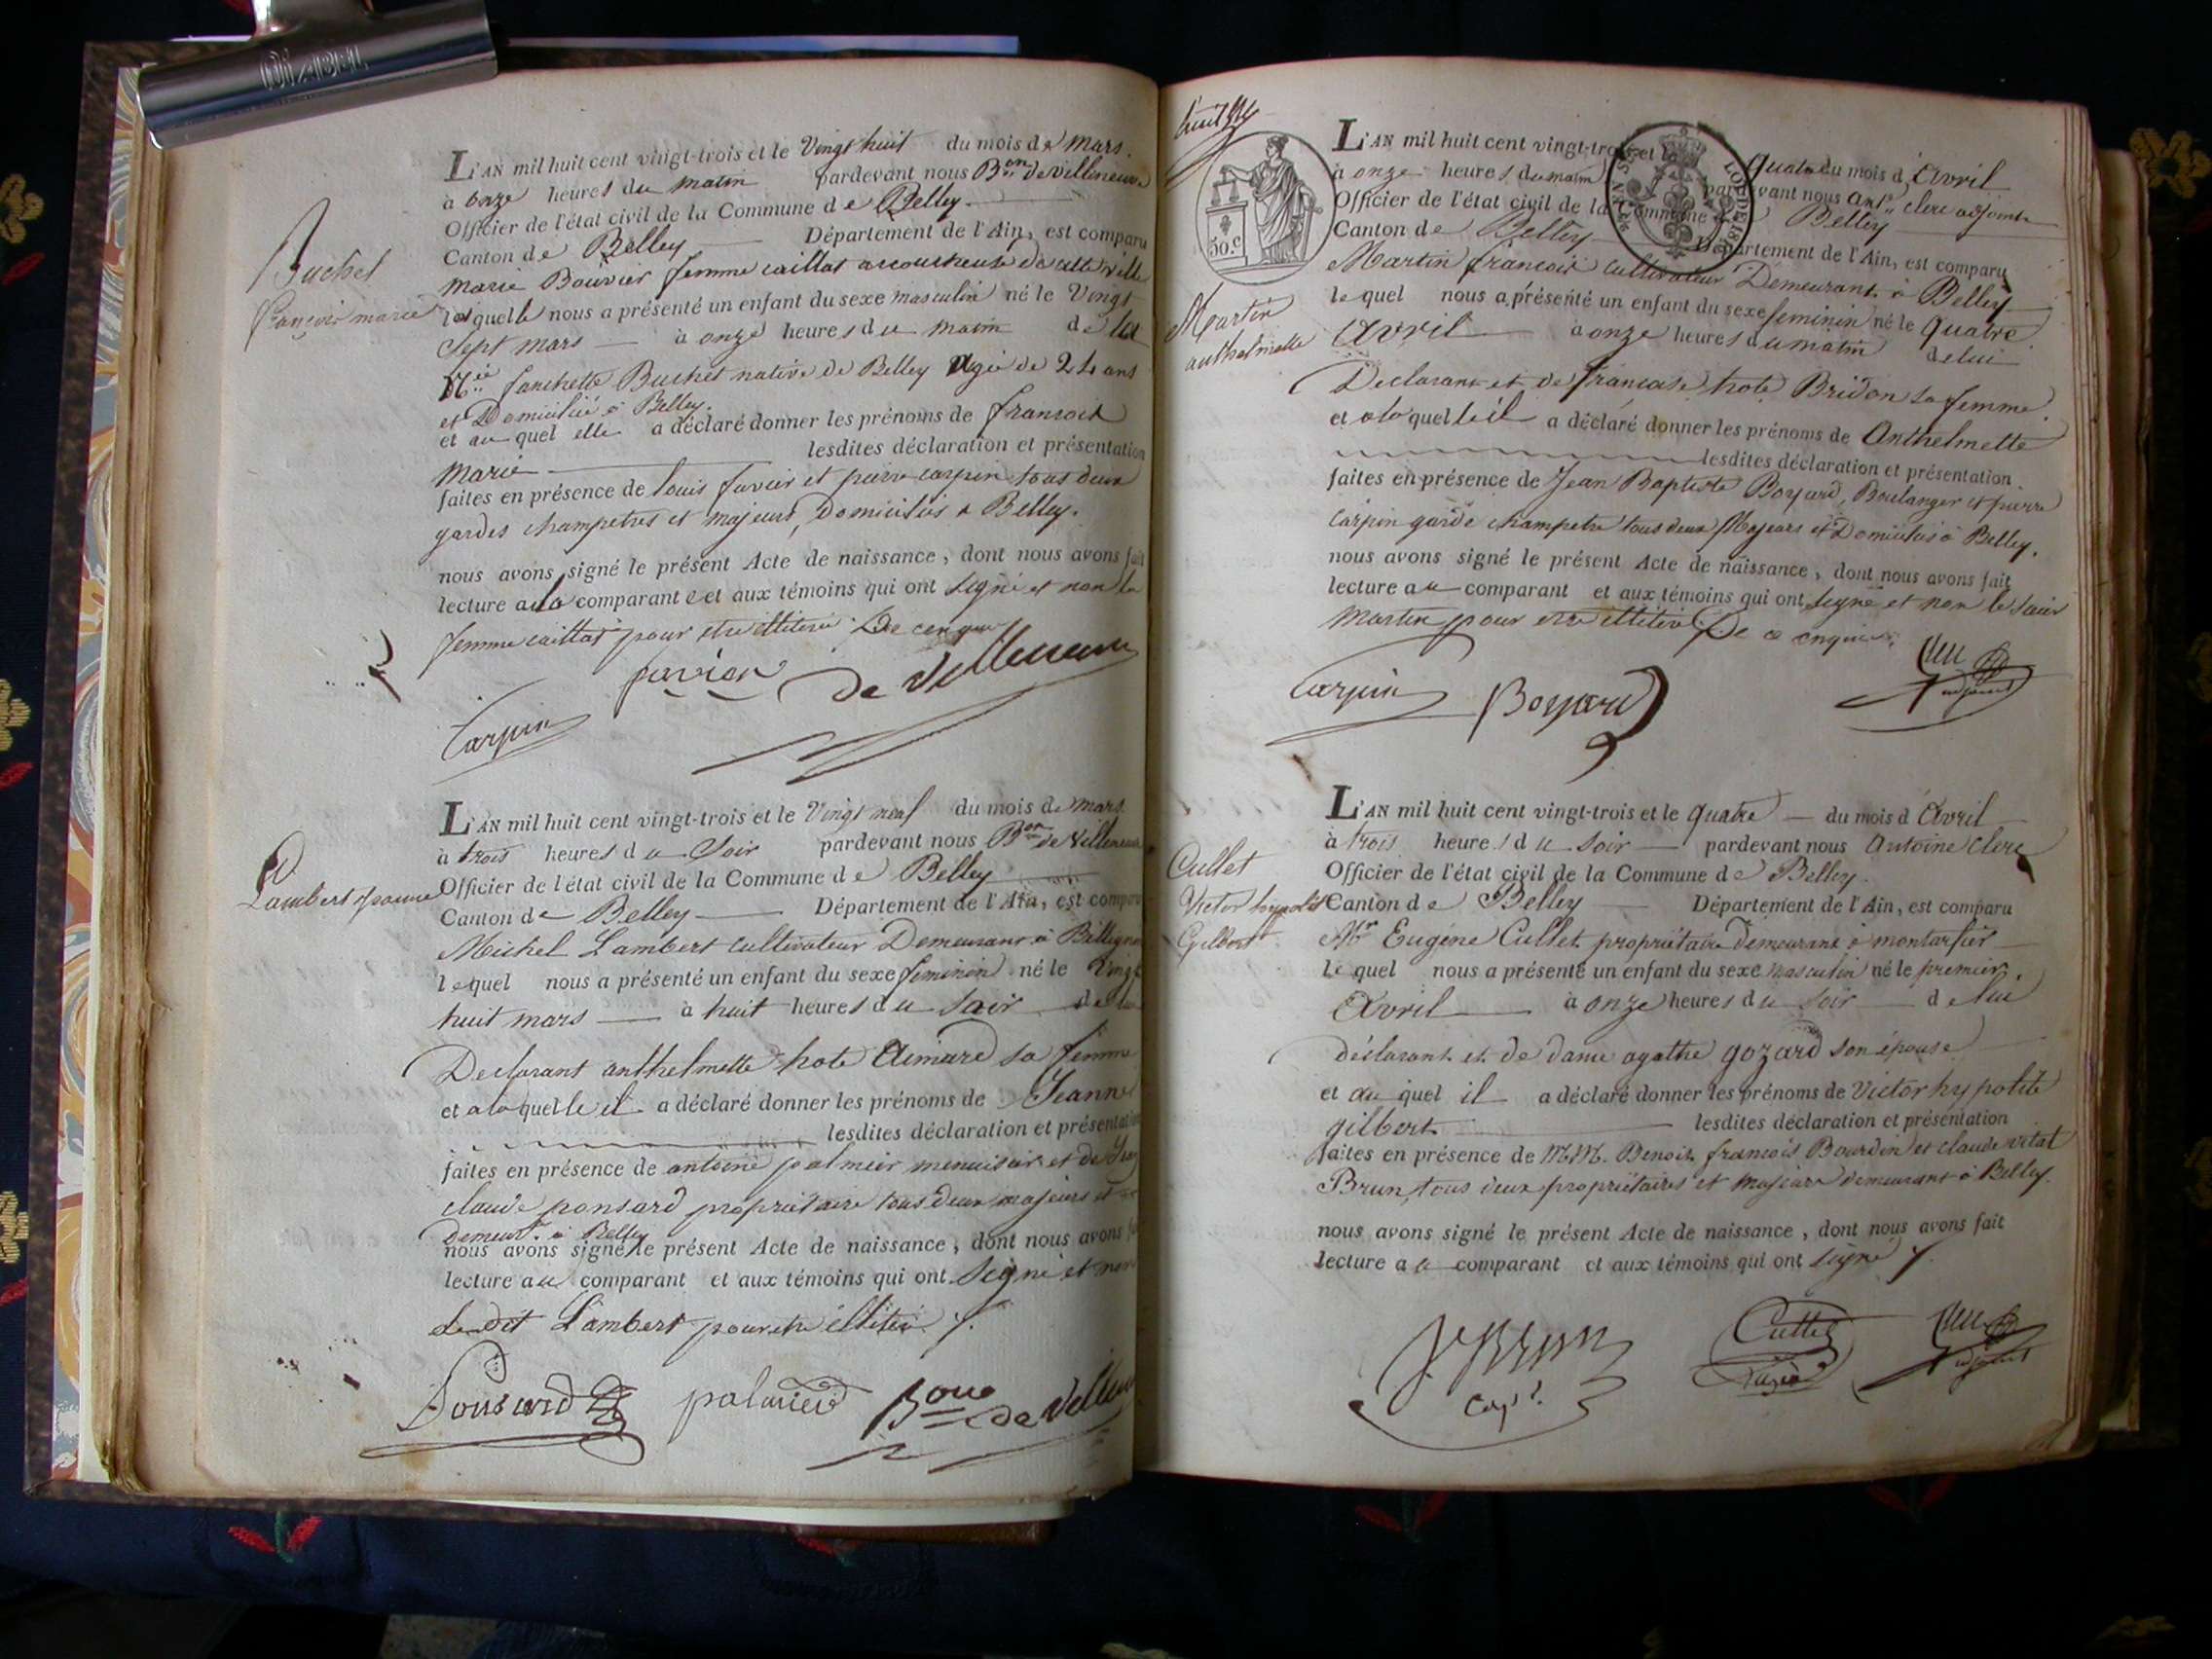 DIABEL
Buchet
françois marie
L'AN mil huit cent vingt-trois et le Vingt huit du mois de mars.
à onze heures du matin pardevant nous Bon de Villeneuve
Officier de l'état civil de la Commune de Belley.
Canton de Belley Département de l'Ain, est comparu
marie Bouvier femme caillat accoucheuse de cette ville
laquelle nous a présenté un enfant du sexe masculin né le Vingt
sept mars à onze heures du matin de la
fanchette Buchet native de Belley agée de 24 ans
et Domiciliée à Belley.
et au quel elle a déclaré donner les prénoms de francois
marie lesdites déclaration et présentation
faites en présence de louis favier et pierre carpin tous deux
gardes champetres et majeurs, Domiciliés a Belley.
nous avons signé le présent Acte de naissance, dont nous avons fait
lecture a la comparante et aux témoins qui ont signé et non la
femme caillat pour etre illitérée De ce enquis
favier de Villeneuve
Carpin
Lambert jeanne
L'AN mil huit cent vingt-trois et le Vingt neuf du mois de mars.
à trois heures du soir pardevant nous Bon de Villeneuve
Officier de l'état civil de la Commune de Belley
Canton de Belley Département de l'Ain, est comparu
Michel Lambert cultivateur Demeurant à
lequel nous a présenté un enfant du sexe feminin né le Vingt
huit mars à huit heures du soir de lui
Declarant anthelmette hote Aimard sa femme
et a laquelle il a déclaré donner les prénoms de Jeanne
lesdites déclaration et présentation
faites en présence de antoine palmier menuisier et de
claude ponsard propriétaire tous deux majeurs et
demeurt. à Belley
nous avons signé le présent Acte de naissance, dont nous avons fait
lecture au comparant et aux témoins qui ont signé et non
Le dit Lambert pour etre illitéré
Ponsard palmier Bon de Villeneuve
50.c
Martin
anthelmette
L'AN mil huit cent vingt-trois et le quatre du mois d'Avril
à onze heures du matin pardevant nous antne clerc adjoint
Officier de l'état civil de la Commune de Belley
Canton de Belley Département de l'Ain, est comparu
Martin francois cultivateur Demeurant à Belley
lequel nous a présenté un enfant du sexe feminin né le quatre
Avril à onze heures du matin de lui
Declarant et de francoise hote Bridon sa femme
et a laquelle il a déclaré donner les prénoms de Anthelmette
lesdites déclaration et présentation
faites en présence de Jean Baptiste Boyard, Boulanger et pierre
Carpin garde champetre tous deux Majeurs et Domiciliés à Belley.
nous avons signé le présent Acte de naissance, dont nous avons fait
lecture au comparant et aux témoins qui ont signé et non le sieur
Martin pour etre illitéré De ce enquis
Carpin Boyard Clerc adjoint
Cullet
Victor hypolite
Gilbert
L'AN mil huit cent vingt-trois et le quatre du mois d'Avril
à trois heures du soir pardevant nous Antoine Clerc
Officier de l'état civil de la Commune de Belley.
Canton de Belley Département de l'Ain, est comparu
Mr Eugène Cullet propriétaire demeurant à montarfier
lequel nous a présenté un enfant du sexe masculin né le premier
Avril à onze heures du soir de lui
déclarant et de dame agathe gozard son épouse
et au quel il a déclaré donner les prénoms de Victor hypolite
gilbert lesdites déclaration et présentation
faites en présence de MM. Benoit francois Bourdin et claude vital
Brun, tous deux propriétaires et majeurs demeurant à Belley.
nous avons signé le présent Acte de naissance, dont nous avons fait
lecture au comparant et aux témoins qui ont signé
Brun Cullet Clerc
Capt. Eugène adjoint